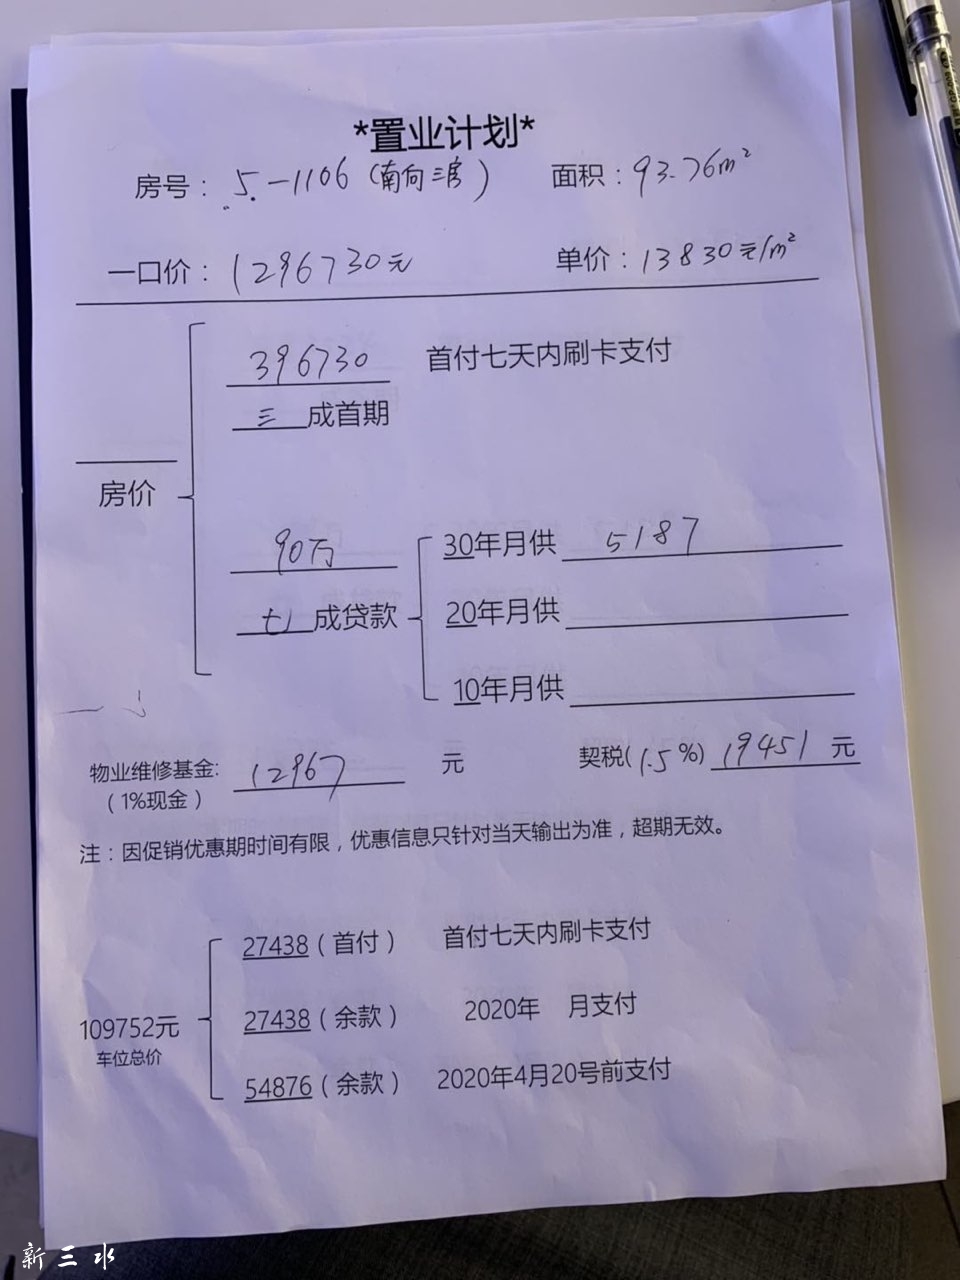 *置业计划*
房号：5-1106（南向三房） 面积：93.76m²
一口价：1296730元 单价：13830元/m²
396730 首付七天内刷卡支付
三成首期
房价
90万 30年月供 5187
七成贷款 20年月供
10年月供
物业维修基金: 12967 元 契税(1.5%) 19451 元
（1%现金）
注：因促销优惠期时间有限，优惠信息只针对当天输出为准，超期无效。
27438（首付） 首付七天内刷卡支付
109752元 27438（余款） 2020年 月支付
车位总价
54876（余款） 2020年4月20号前支付
新三水